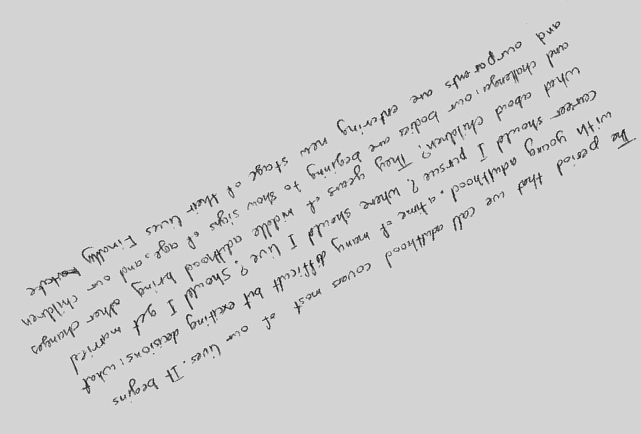 The period that we call adulthood covers most of our lives. It begins
with young adulthood. a time of many difficult but exciting decisions: what
career should I pursue? where should I live? Should I get married
what about children? They years of middle adulthood bring other changes
and challenges: our bodies are begining to show signs of age, and our children
and our parents are entering new stage of their lives Finally